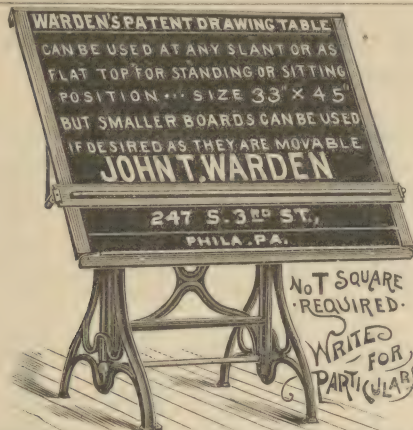 WARDEN'S PATENT DRAWING TABLE
CAN BE USED AT ANY SLANT OR AS
FLAT TOP FOR STANDING OR SITTING
POSITION ··· SIZE 33" X 45"
BUT SMALLER BOARDS CAN BE USED
IF DESIRED AS THEY ARE MOVABLE
JOHN T. WARDEN
247 S. 3RD ST.,
PHILA. PA.
NO T SQUARE
·REQUIRED·
WRITE
FOR
PARTICULARS